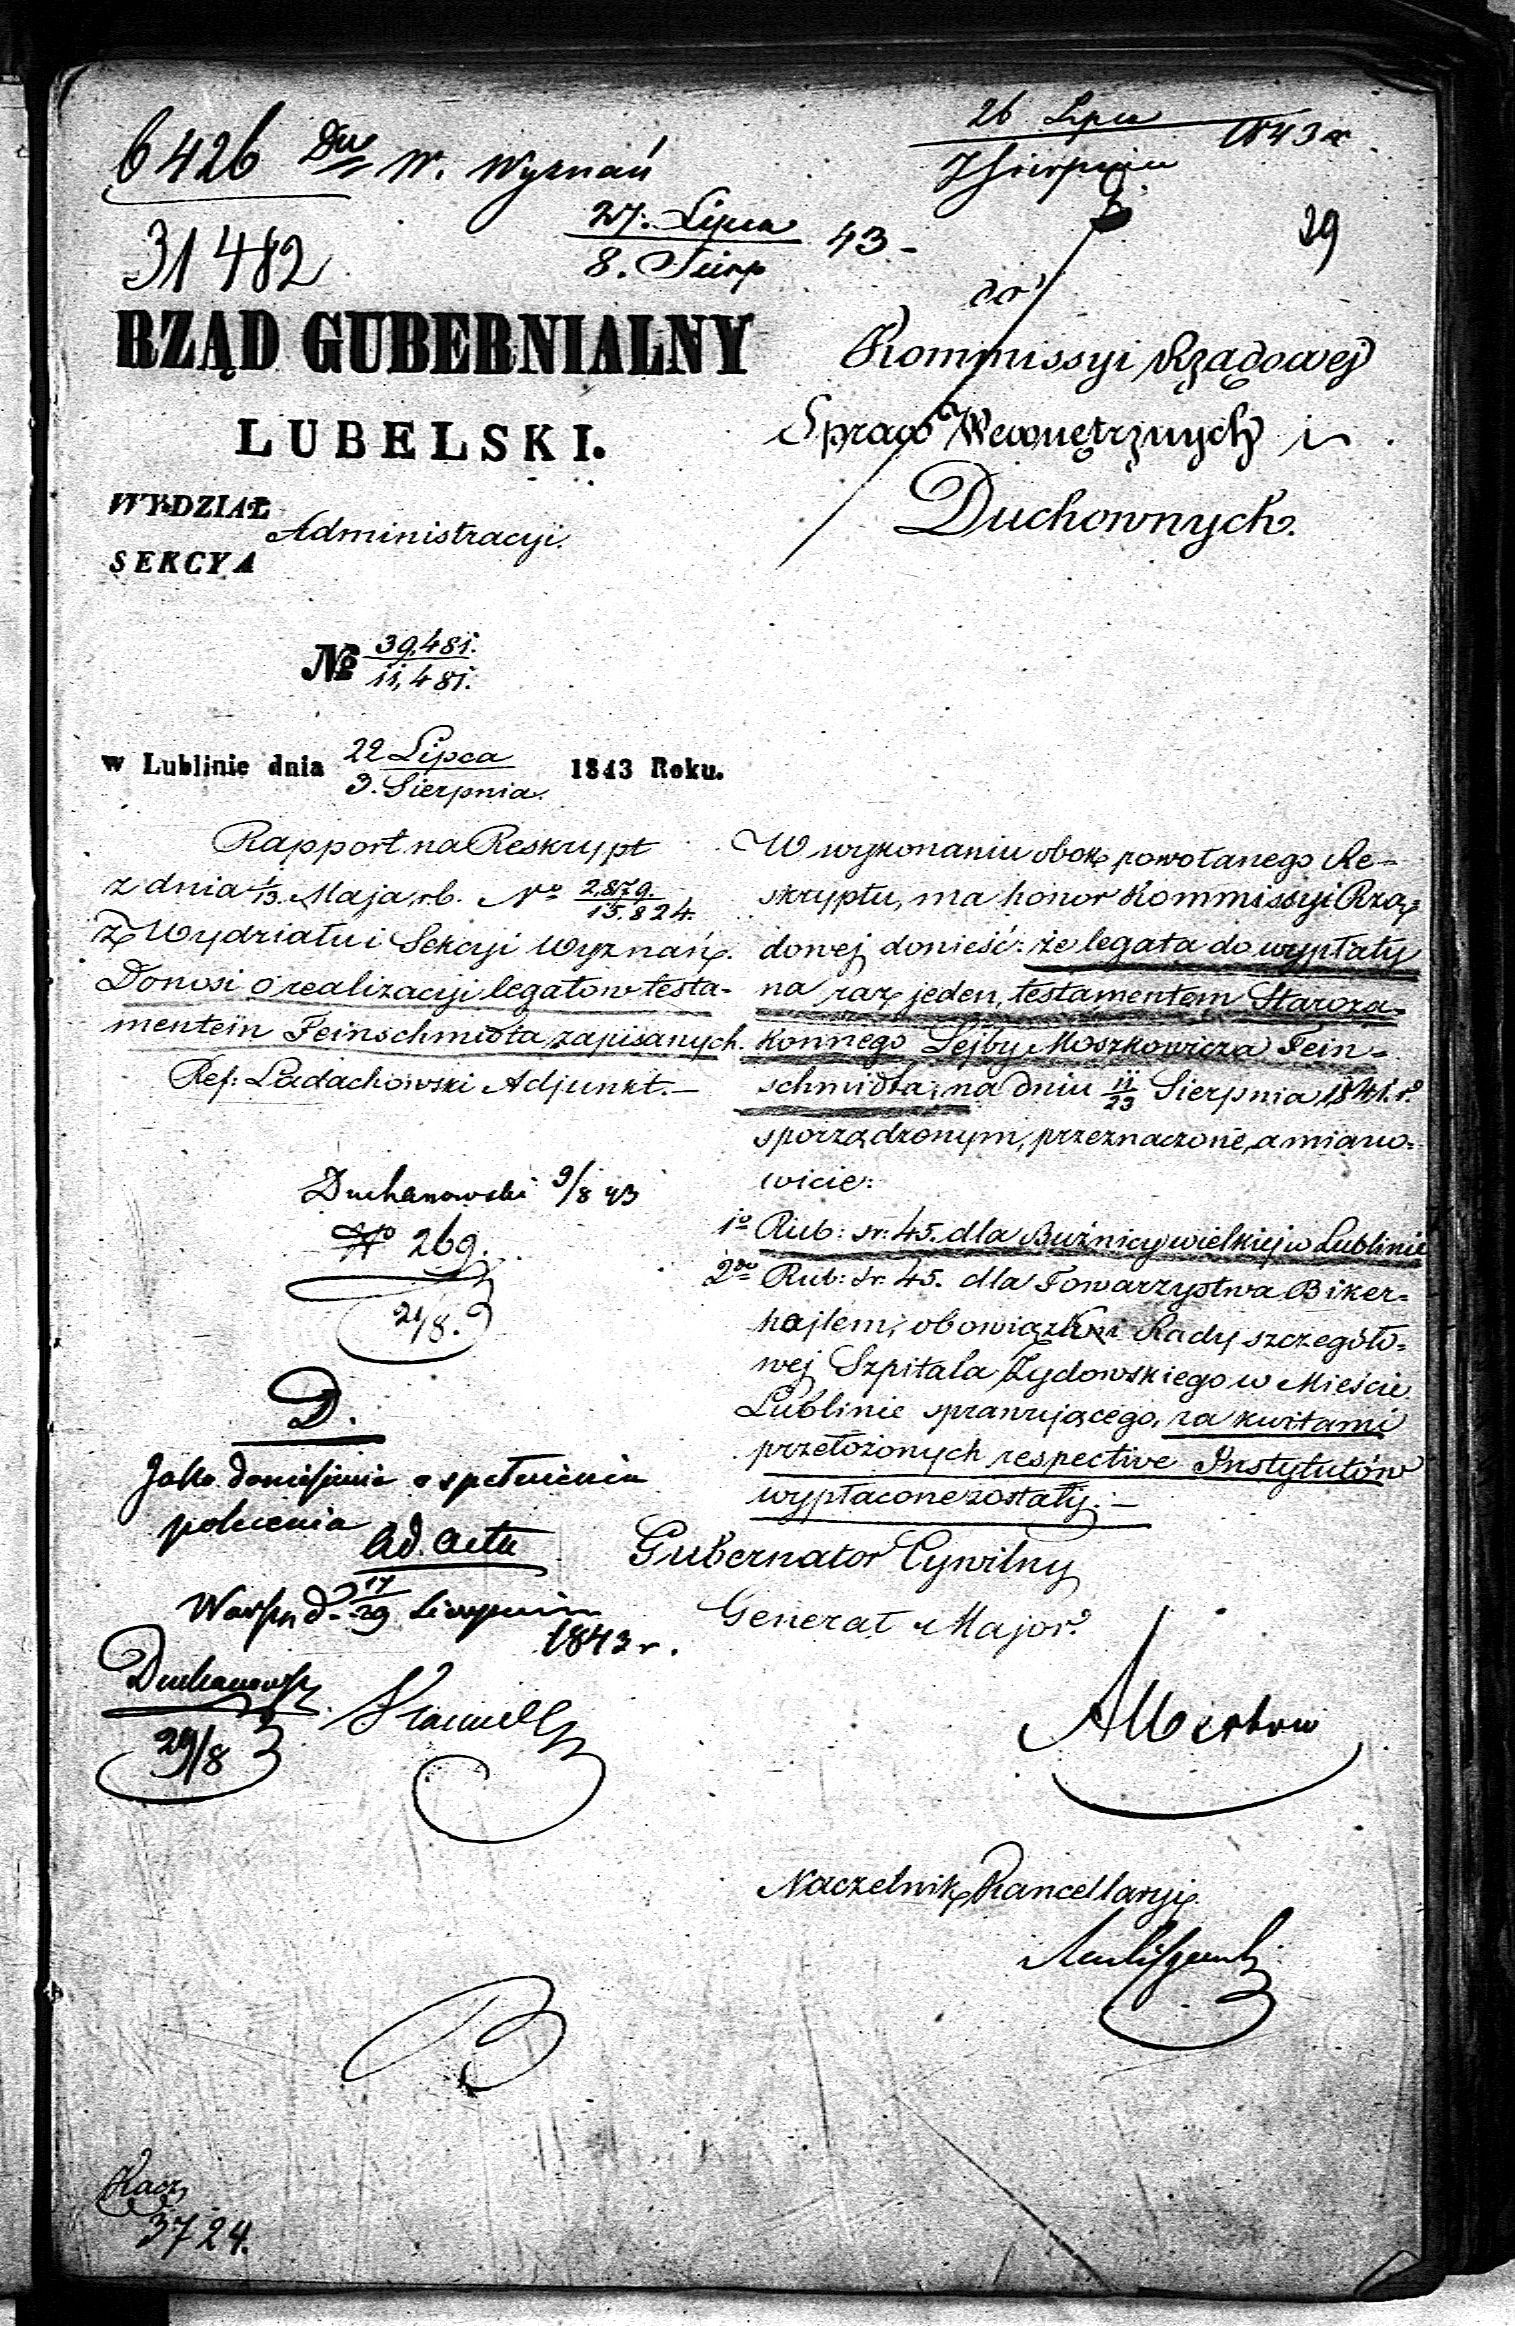 6426 Dw W. Wyznań
26 Lipca
7 Sierpnia 1843 r.
31482
27. Lipca
8. Sierp 43-
29
RZĄD GUBERNIALNY
LUBELSKI.
WYDZIAŁ
Administracyi.
SEKCYA
do
Kommissyi Rządowej
Spraw Wewnętrznych i
Duchownych.
№ 39,481.
11,481.
w Lublinie dnia 22 Lipca
3. Sierpnia. 1843 Roku.
Rapport na Reskrypt
z dnia 1/13 Maja rb. No 2879.
15.824.
z Wydziału i Sekcyi Wyznań.
Donosi o realizacyi legatow testa-
mentem Feinschmidta zapisanych.
Ref: Ladachowski Adjunkt.-
Duchanowski 9/8 43
No 269.
21/8.
D.
Jako doniesienie o spełnieniu
polecenia
ad acta
Warsz d. 17/29 Sierpnia
1843 r.
Duchanowski
29/8
W wykonaniu obok powołanego Re-
skryptu, ma honor Kommissyi Rzą-
dowej donieść: że legata do wypłaty
na raz jeden, testamentem Staroza-
konnego Lejby Moszkowicza Fein-
schmidta, na dniu 11/23 Sierpnia 1841. r.
sporządzonym, przeznaczone, a miano-
wicie:
1o Rub: sr: 45. dla Bużnicy wielkiej w Lublinie
2do Rub: Sr: 45. dla Towarzystwa Biker-
hojlem, obowiązki Rady szczegóło-
wej Szpitala Żydowskiego w Mieście
Lublinie sprawującego, za kwitami
przełożonych respective Instytutów
wypłacone zostały.-
Gubernator Cywilny
Generał Major.
Albertow
Naczelnik Kancellaryi.
Kacz
3724.